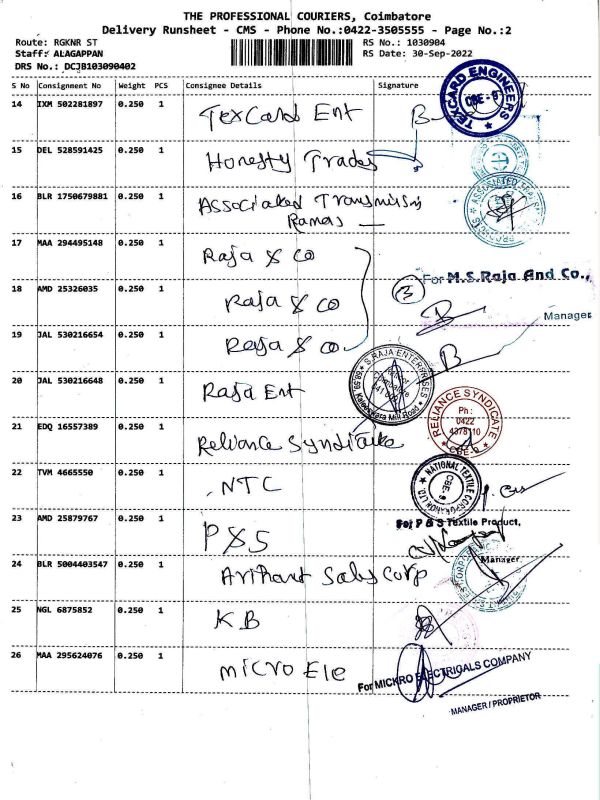 THE PROFESSIONAL COURIERS, Coimbatore
Delivery Runsheet - CMS - Phone No.:0422-3505555 - Page No.:2
Route: RGKNR ST
RS No.: 1030904
Staff: ALAGAPPAN
RS Date: 30-Sep-2022
DRS No.: DCJB103090402
S No Consignment No Weight PCS Consignee Details Signature
14 IXM 502281897 0.250 1 Texcard Ent B
TEXCARD ENGINEERS CBE-6
15 DEL 528591425 0.250 1 Honesty Trades
16 BLR 1750679881 0.250 1 Associated Transmission
Ramas
17 MAA 294495148 0.250 1 Raja & Co
For M.S.Raja And Co.,
18 AMD 25326035 0.250 1 Raja & Co 3 B
Manager
19 JAL 530216654 0.250 1 Raja & Co B
S.RAJA ENTERPRISES
20 JAL 530216648 0.250 1 Raja Ent
RELIANCE SYNDICATE
Ph :
0422
4378110
CBE-6
21 EDQ 16557389 0.250 1 Reliance Syndicate
22 TVM 4665550 0.250 1 NTC
NATIONAL TEXTILE CORPORATION LTD.
23 AMD 25879767 0.250 1 P&S
For P & S Textile Product,
Manager
24 BLR 5004403547 0.250 1 Arihant Sales Corp
25 NGL 6875852 0.250 1 KB
26 MAA 295624076 0.250 1 Micro Ele
For MICKRO ELECTRICALS COMPANY
MANAGER / PROPRIETOR